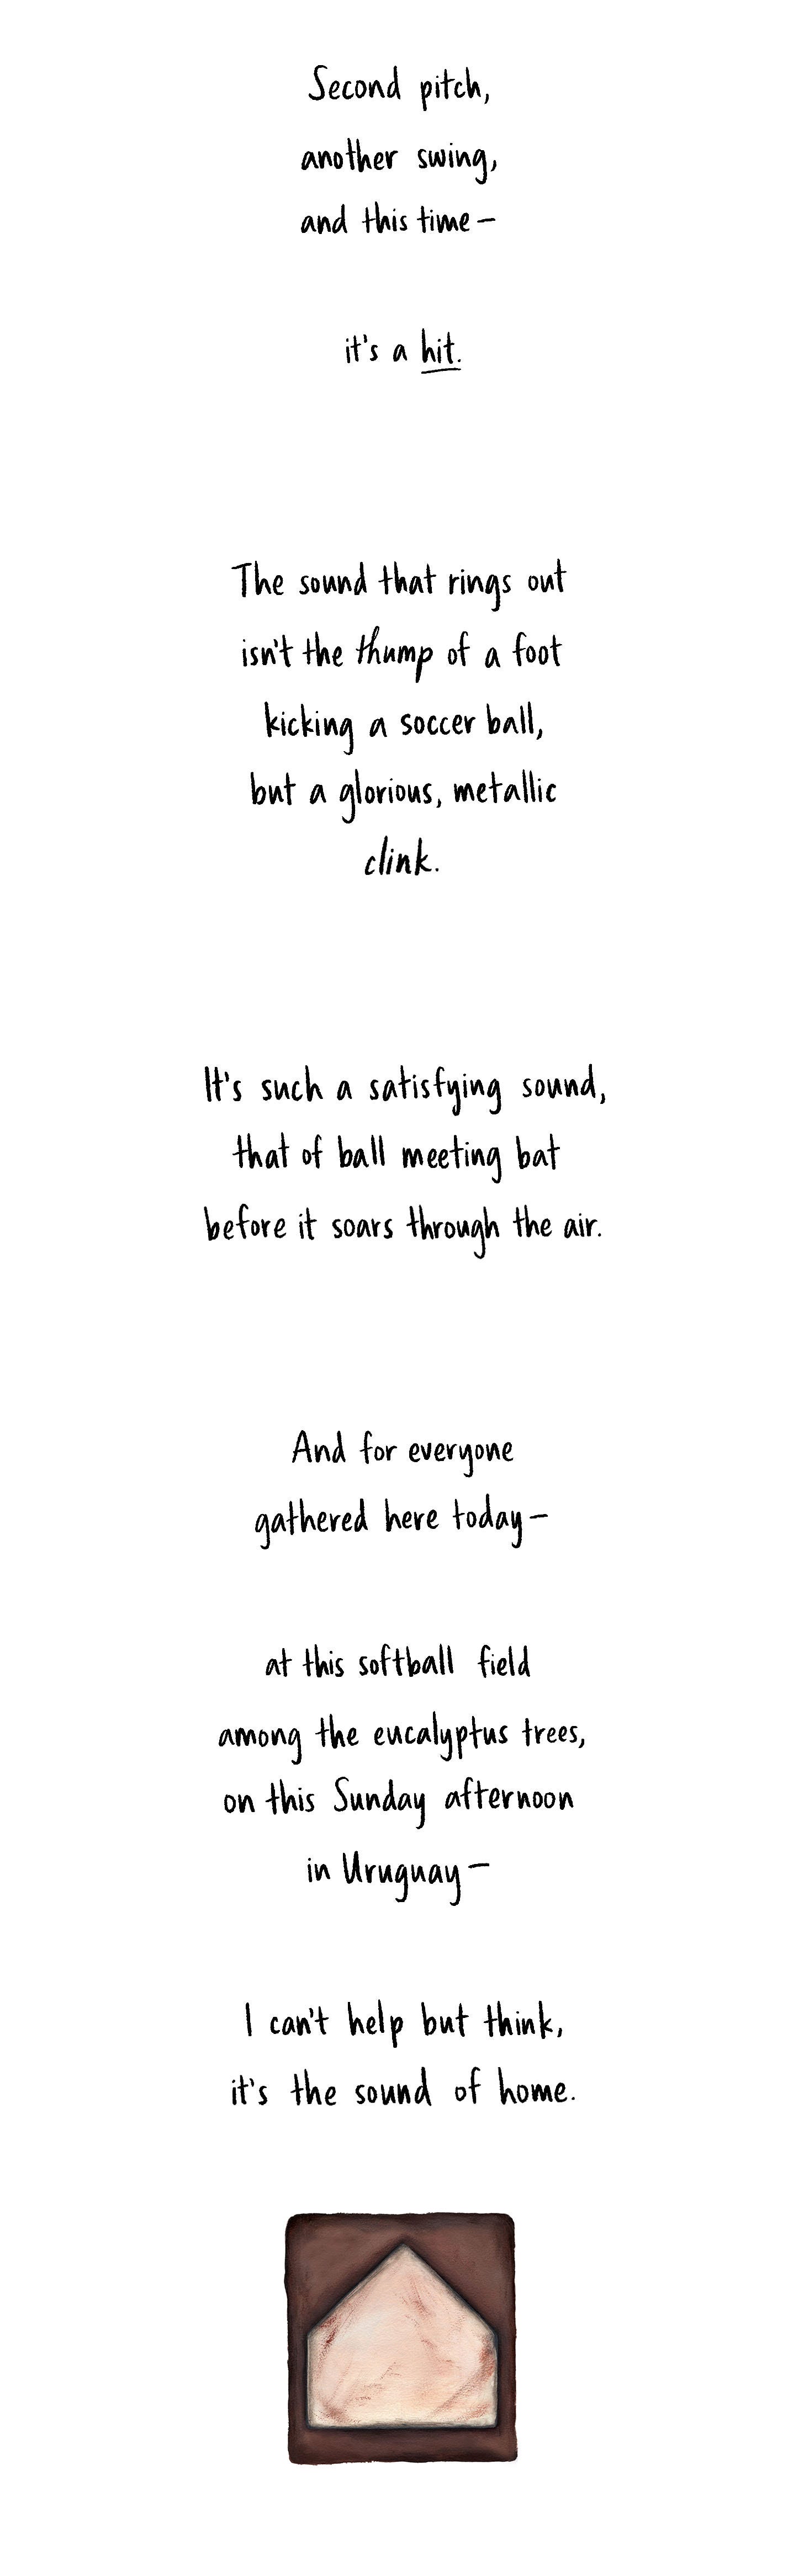 Second pitch,
another swing,
and this time—
it's a hit.
The sound that rings out
isn't the thump of a foot
kicking a soccer ball,
but a glorious, metallic
clink.
It's such a satisfying sound,
that of ball meeting bat
before it soars through the air.
And for everyone
gathered here today—
at this softball field
among the eucalyptus trees,
on this Sunday afternoon
in Uruguay—
I can't help but think,
it's the sound of home.